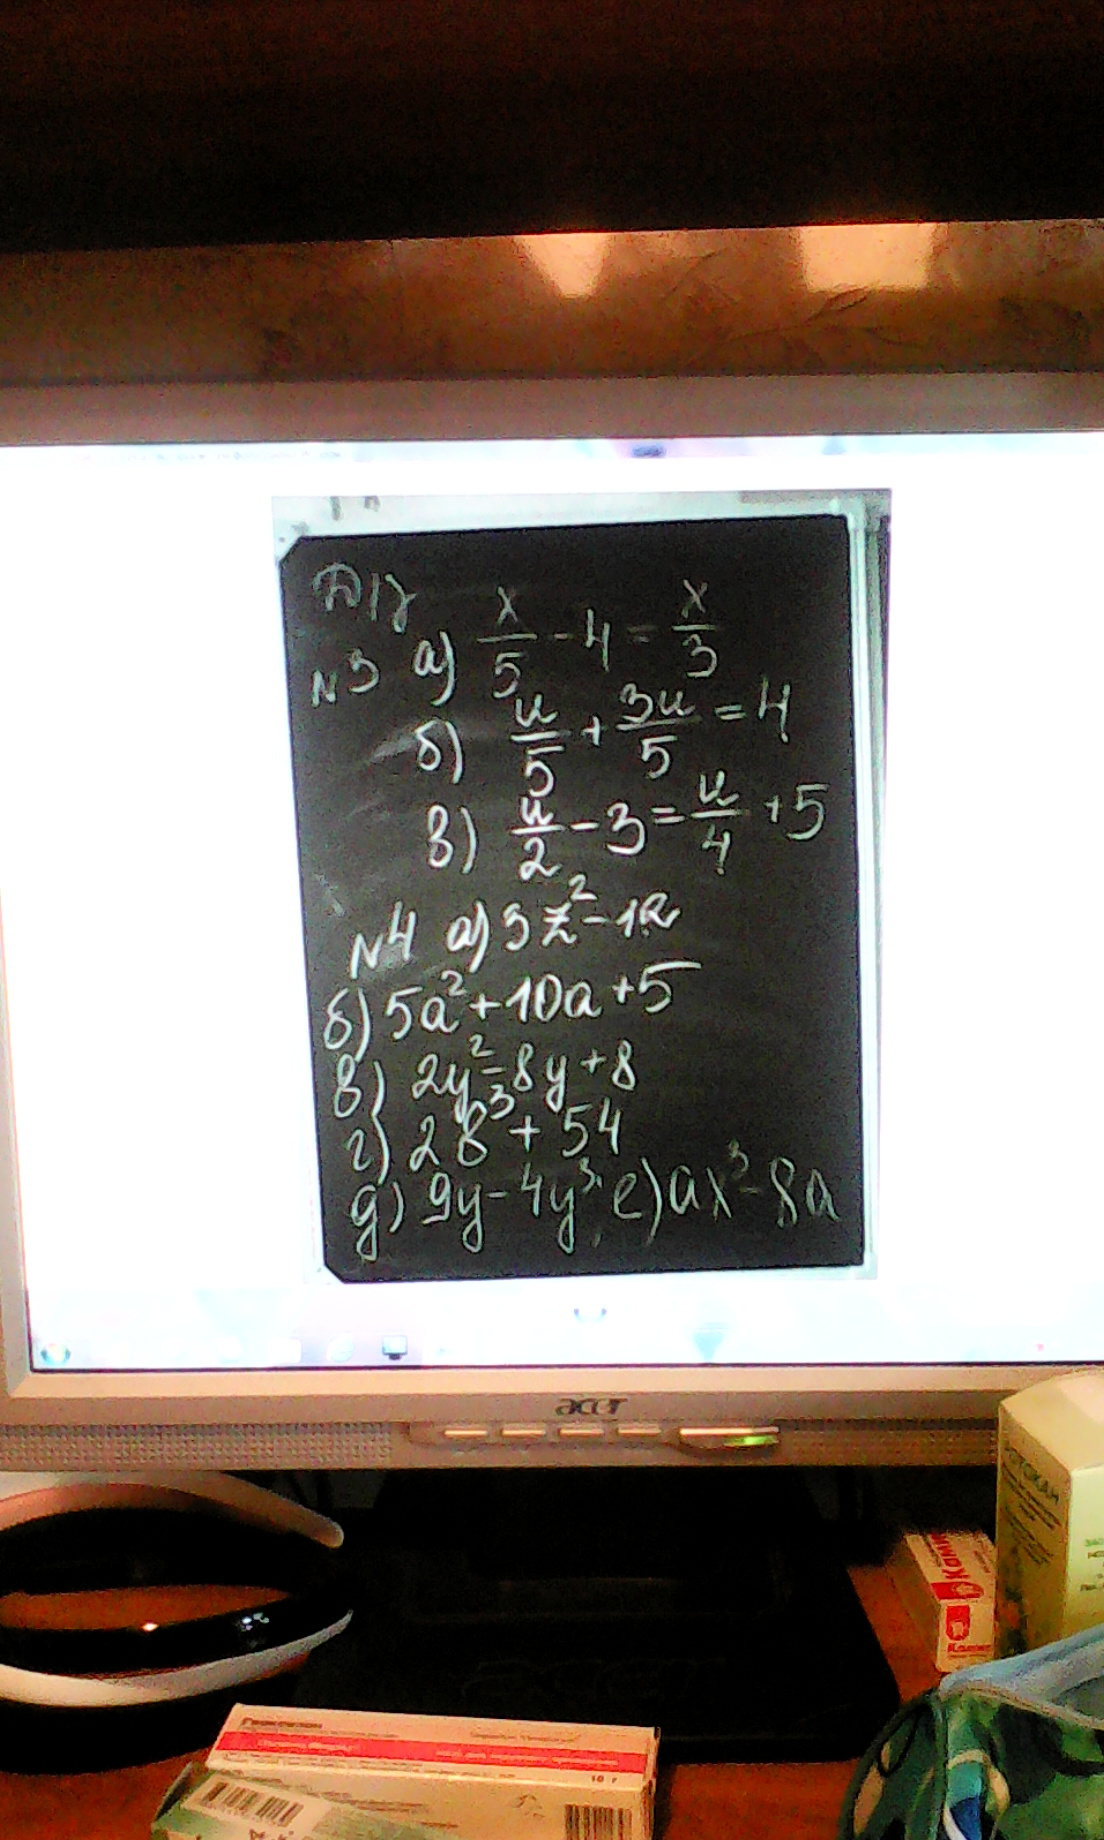 №3 а) x/5 - 4 = x/3
б) u/5 + 3u/5 = 4
в) u/2 - 3 = u/4 + 5
№4 а) 3z² - 12
б) 5a² + 10a + 5
в) 2y² - 8y + 8
г) 2b³ + 54
д) 9y - 4y³ е) ax³ - 8a
acer